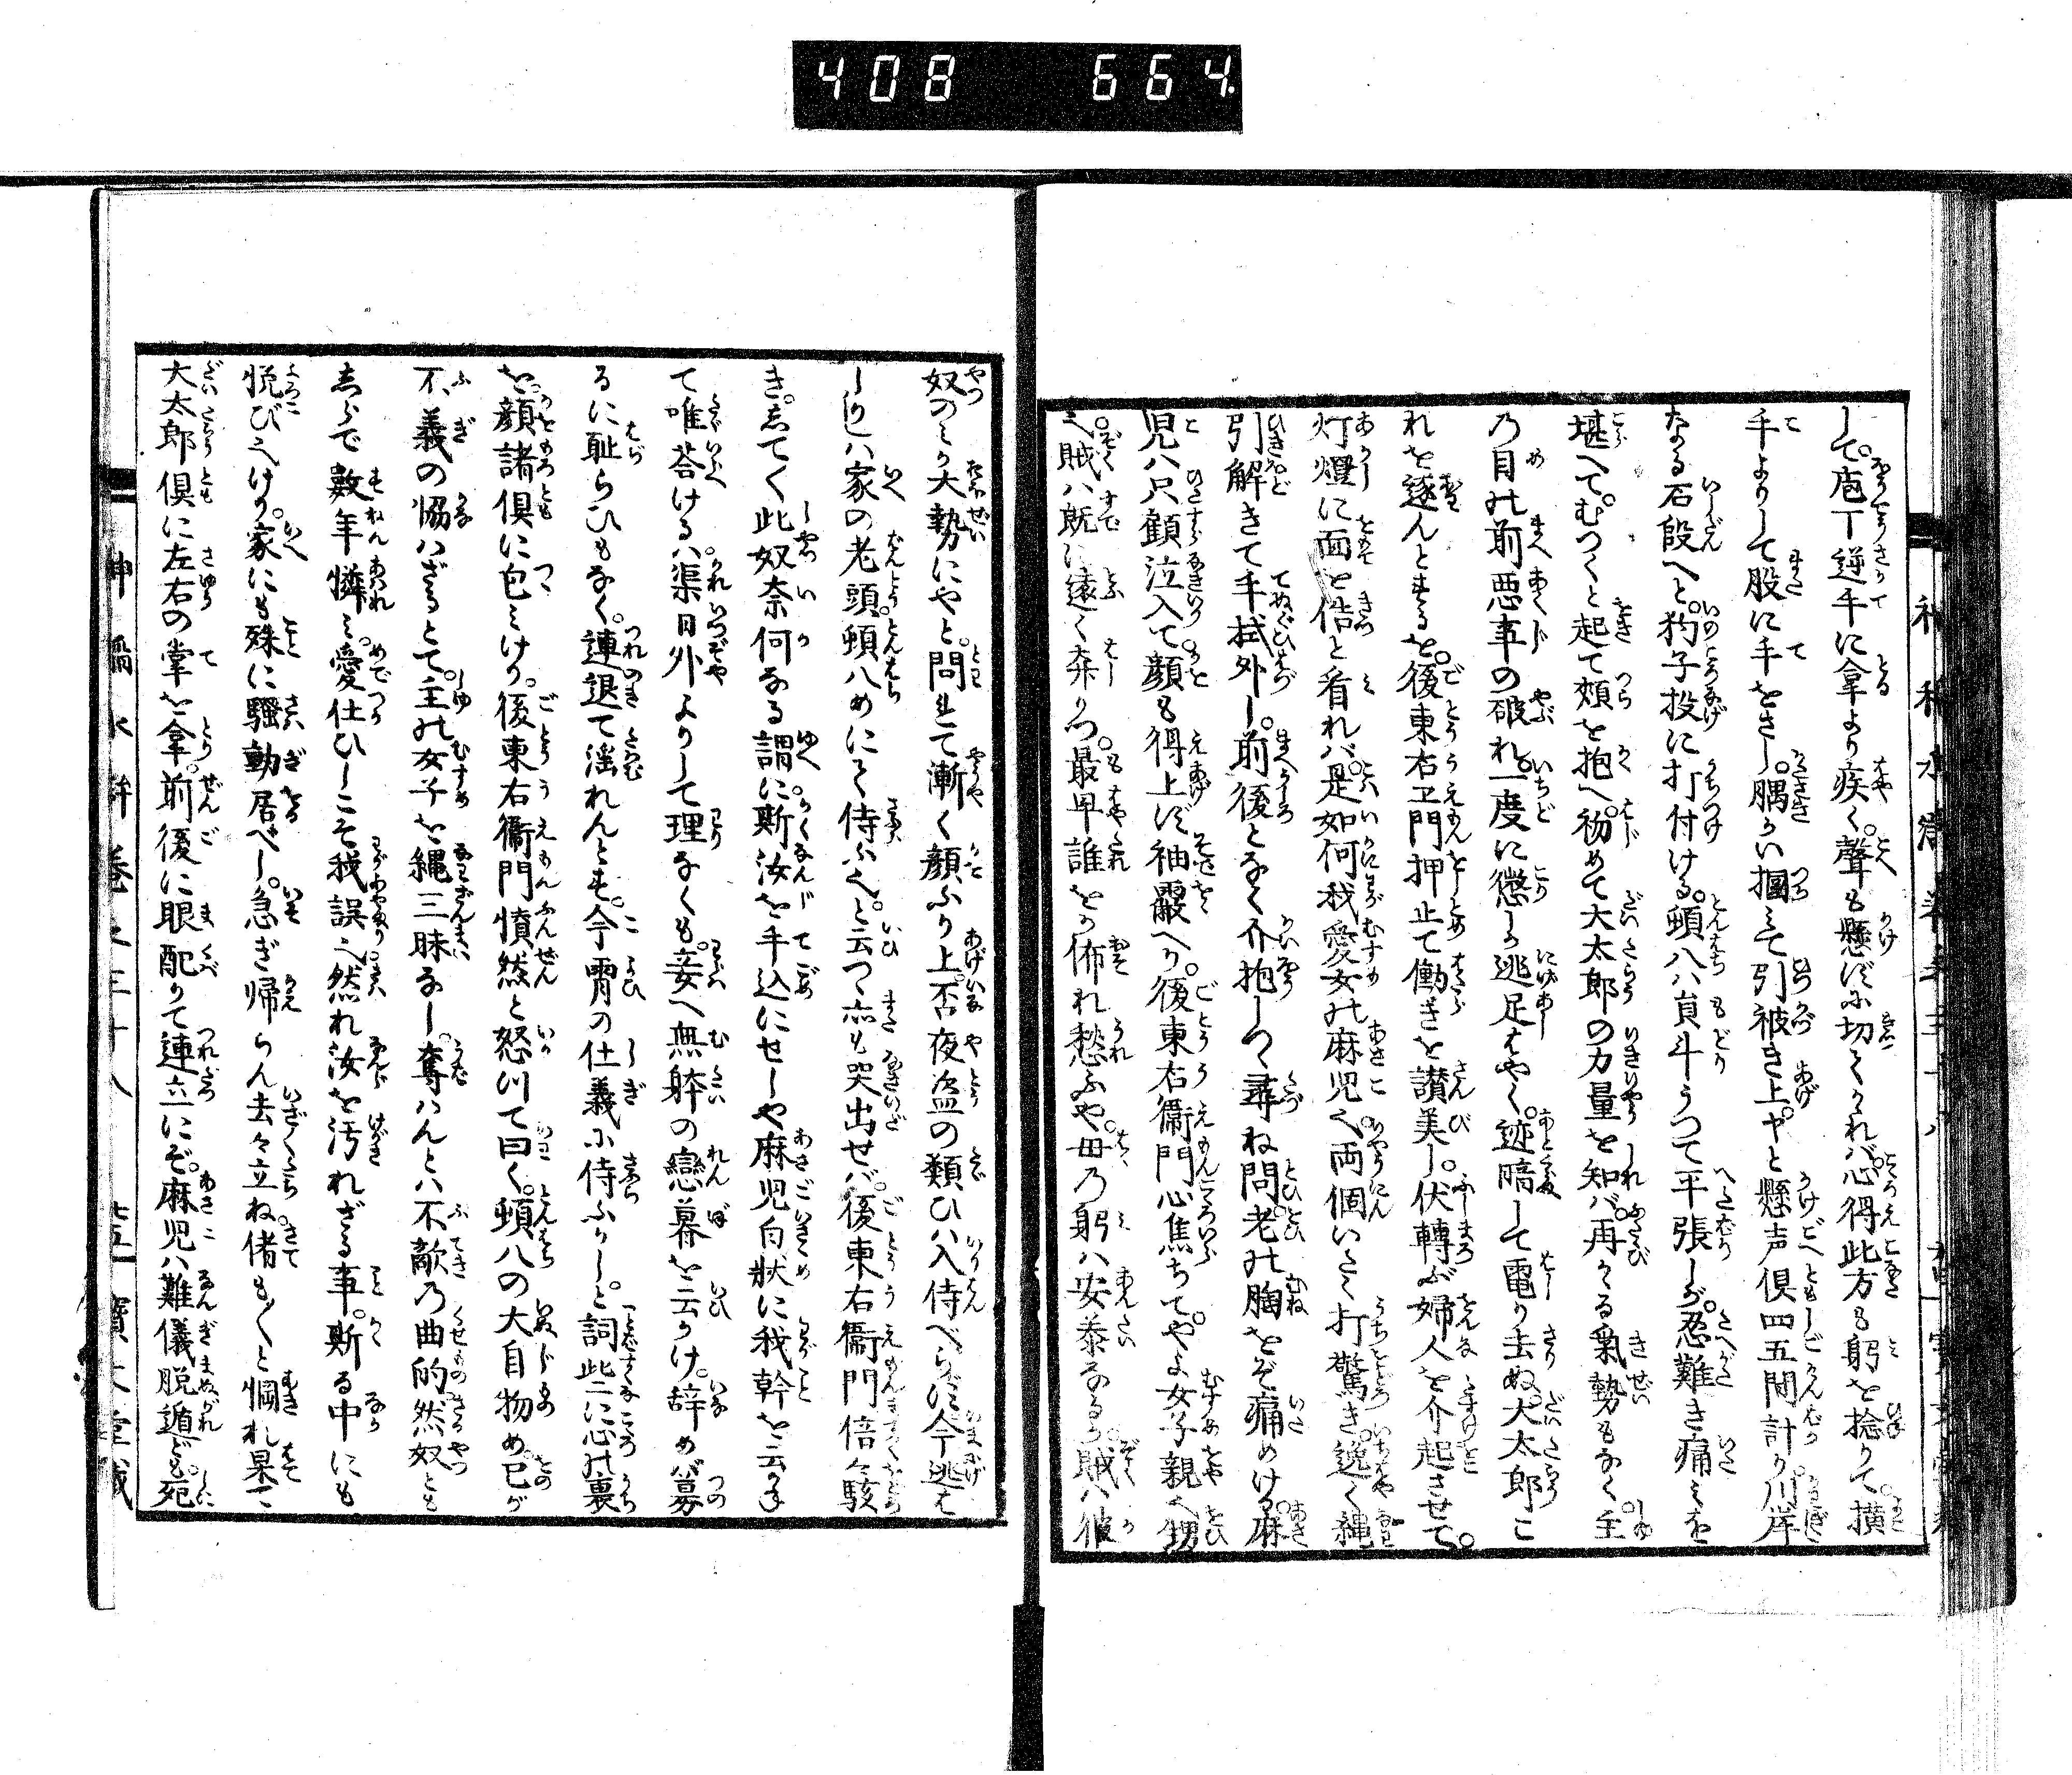 408 664
して。庖丁逆手に拿より疾く。聲も懸ず小切てくれバ。心得此方も躬を捻りて。横
手よりして股に手をさし。隅かい摑ミて引被き上。ヤと懸声倶四五間計り。川岸
なる石段へと。狗子投に打付ける。頓八ハ眞斗うつて平張しが。忍難き痛ミを
堪へて。むつくと起て頬を抱へ。初めて大太郎の力量を知バ。再かゝる氣勢もなく。主
乃目の前悪事の破れ。一度に懲しか逃足はやく。迹暗して電り去ぬ。大太郎こ
れを逐んとするを。後東右エ門押止て働きを讃美し。伏轉ぶ婦人を介起させて。
灯燈に面を倩と看れバ。是如何我愛女の麻児也。両個いたく打驚き。逸く縄
引解きて手拭外し。前後となく介抱しつゝ尋ね問。老の胸をぞ痛めける。麻
児ハ只顧泣入て。顔も得上ず袖嚴へり。後東右衞門心焦ちて。やよ女子親也甥
也。賊ハ既に遠く奔りつ。最早誰をか怖れ愁ふや。母乃躬ハ安泰なるか。賊ハ彼
奴のミか大勢にやと。問れて漸く顔ふり上。否夜盗の類ひハ入侍べらず。今逃は
しりしハ家の老頭。頓八めにて侍ふ也。と云つゝ亦も哭出せバ。後東右衞門倍々駭
き。さてく此奴奈何なる謂に。斯汝を手込にせしや麻児白状に我幹を云かね
て唯荅けるハ。渠日外よりして理なくも。妾へ無躰の戀慕を云かけ。辞めバ募
るに耻らひもなく。連退て滛れんとす。今宵の仕義に侍ふかし。と詞些二に心の裏
を。顔諸倶に包ミけり。後東右衞門憤然と怒川て曰く。頓八の大自物め。已が
不義の恊ハざるとて。主の女子を縄三昧なし。奪ハんとハ不敵乃曲的然奴とも
しらで數年憐ミ。愛仕ひしこそ我誤也。然れ汝を汚れざる事。斯る中にも
悦び也けり。家にも殊に騒動居べし。急ぎ帰らん去々立ね偖も〱と惘れ果て
大太郎倶に左右の掌を拿。前後に眼配りて連立にぞ。麻児ハ難儀脱遁ども。死